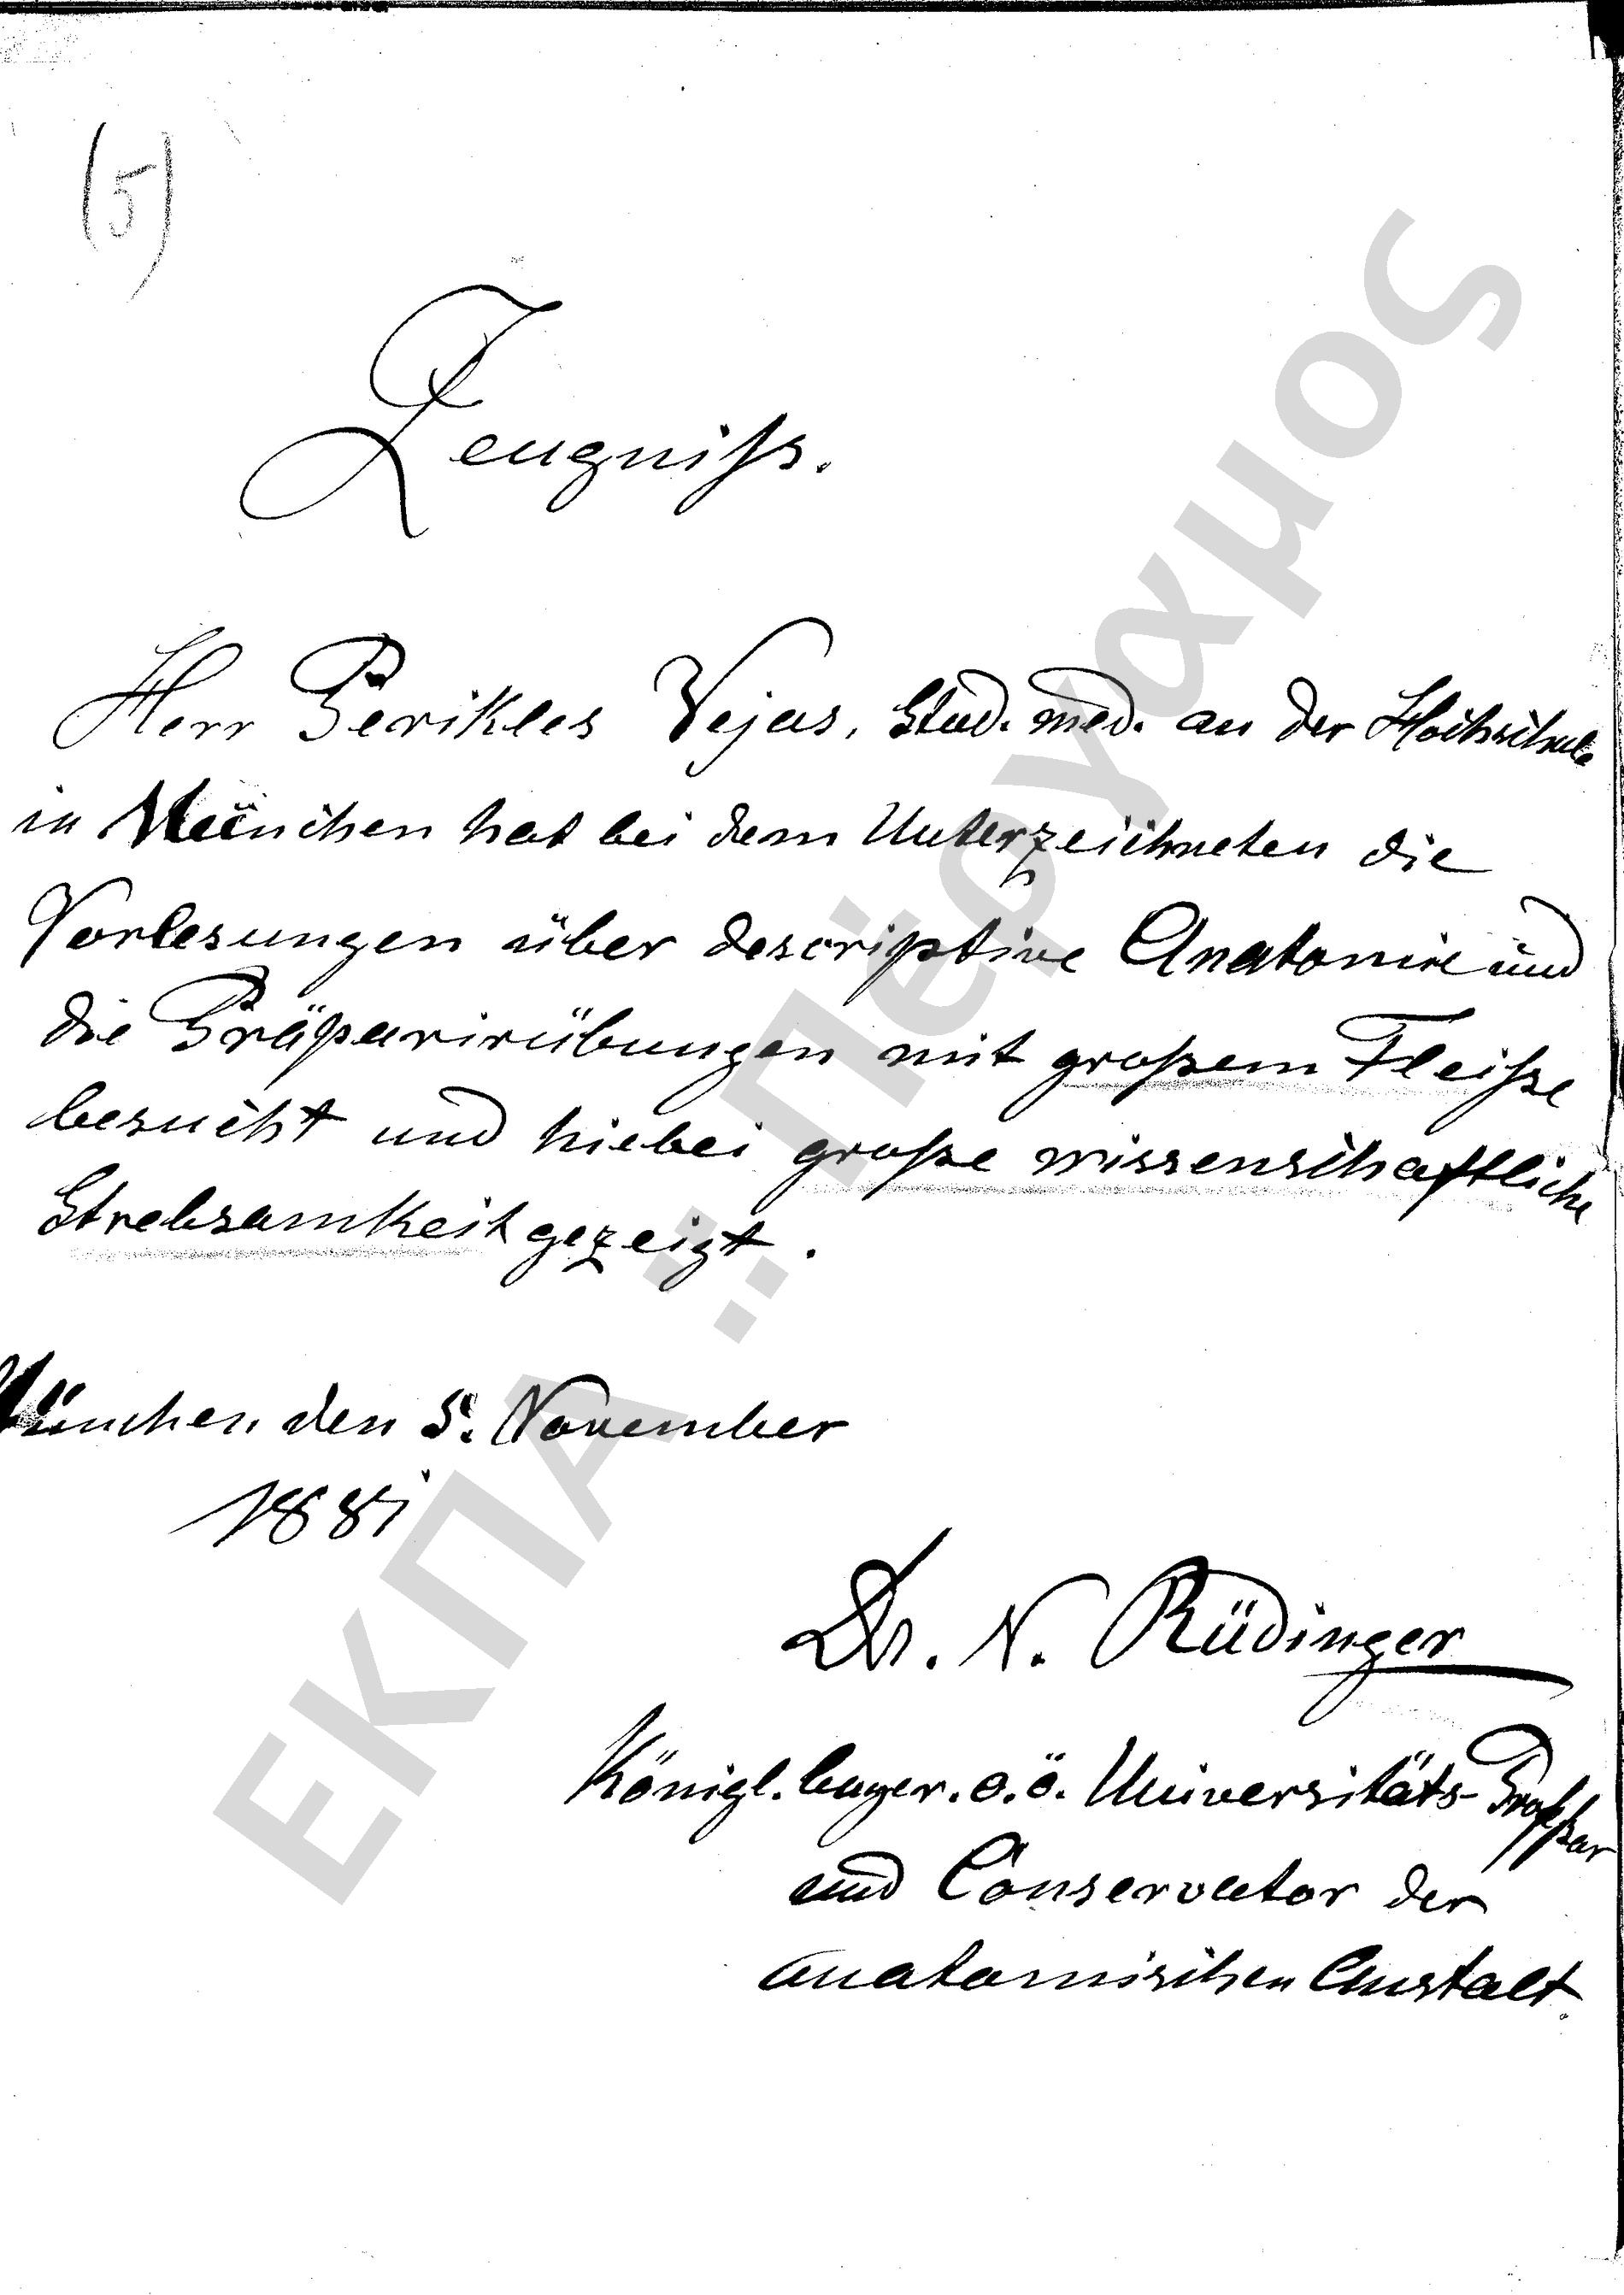 (5)
Zeugniß.
Herr Perikles Vejas, Stud. med. an der Hochschule
in München hat bei dem Unterzeichneten die
Vorlesungen über descriptive Anatomie und
die Präparirübungen mit großem Fleiße
besucht und hiebei große wissenschaftliche
Strebsamkeit gezeigt.
München den 5. November
1881
Dr. N. Rüdinger
Königl. bayer. o.ö. Universitäts-Professor
und Conservator der
anatomischen Anstalt.
ΕΚΠΑ :: Πέργαμος